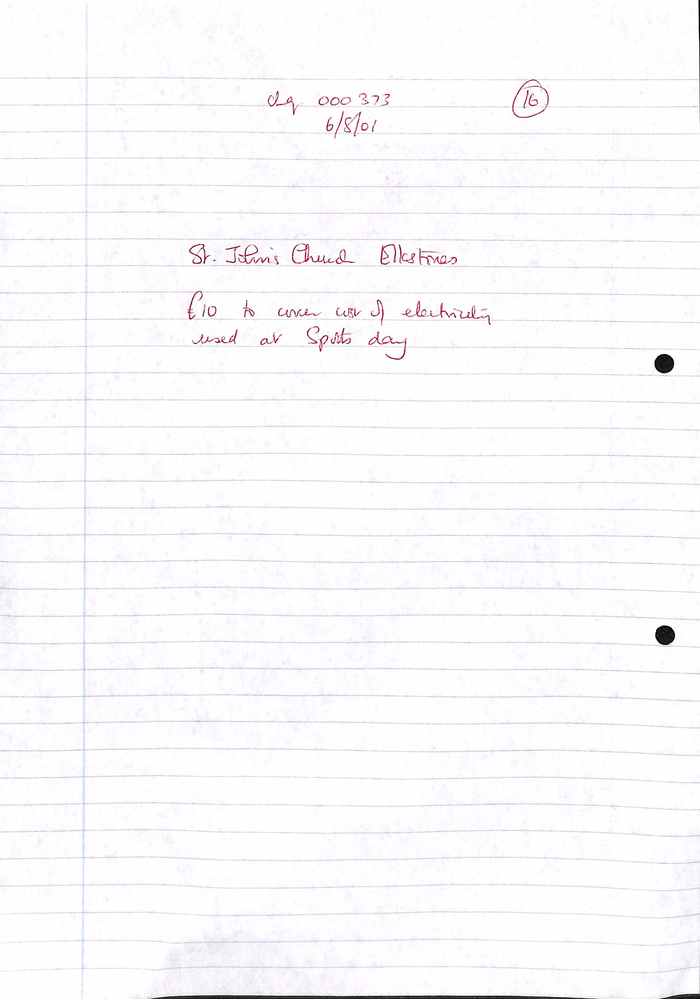 chq 000373
16
6/8/01
St. John's Church Elkstones
£10 to cover cost of electricity
used at Sports day